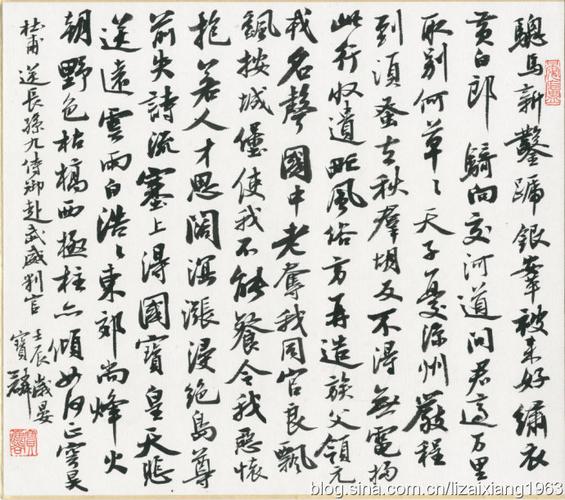 驄馬新鑿蹄銀鞍被來好繡衣
黃白郎騎向交河道問君適萬里
取別何草々天子憂涼州嚴程
到須蚤去秋羣胡反不得無電掃
此行收遺甿風俗方再造族父領元
戎名聲國中老奪我同官良飄
颻按城堡使我不能餐令我惡懷
抱若人才思闊溟漲浸絕島尊
前失詩流塞上得國寶皇天悲
送遠雲雨白浩々東郊尚烽火
朝野色枯槁西極柱亦傾如何正穹昊
杜甫 送長孫九侍御赴武威判官
壬辰歲晏
寶麟
blog.sina.com.cn/lizaixiang1963